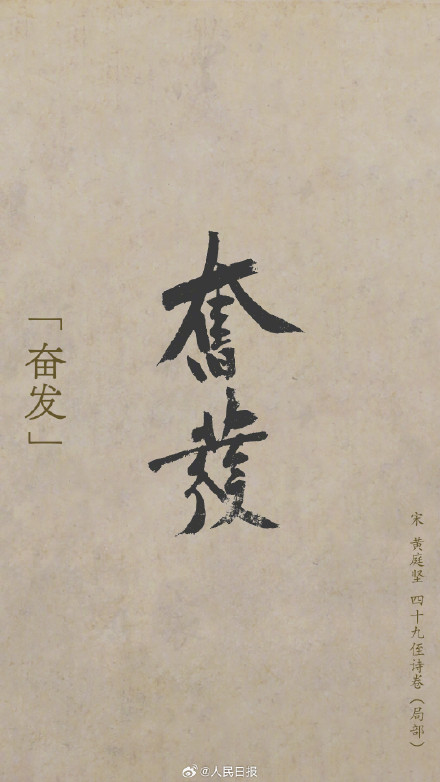 奮發
「奋发」
宋 黄庭坚 四十九侄诗卷（局部）
@人民日报